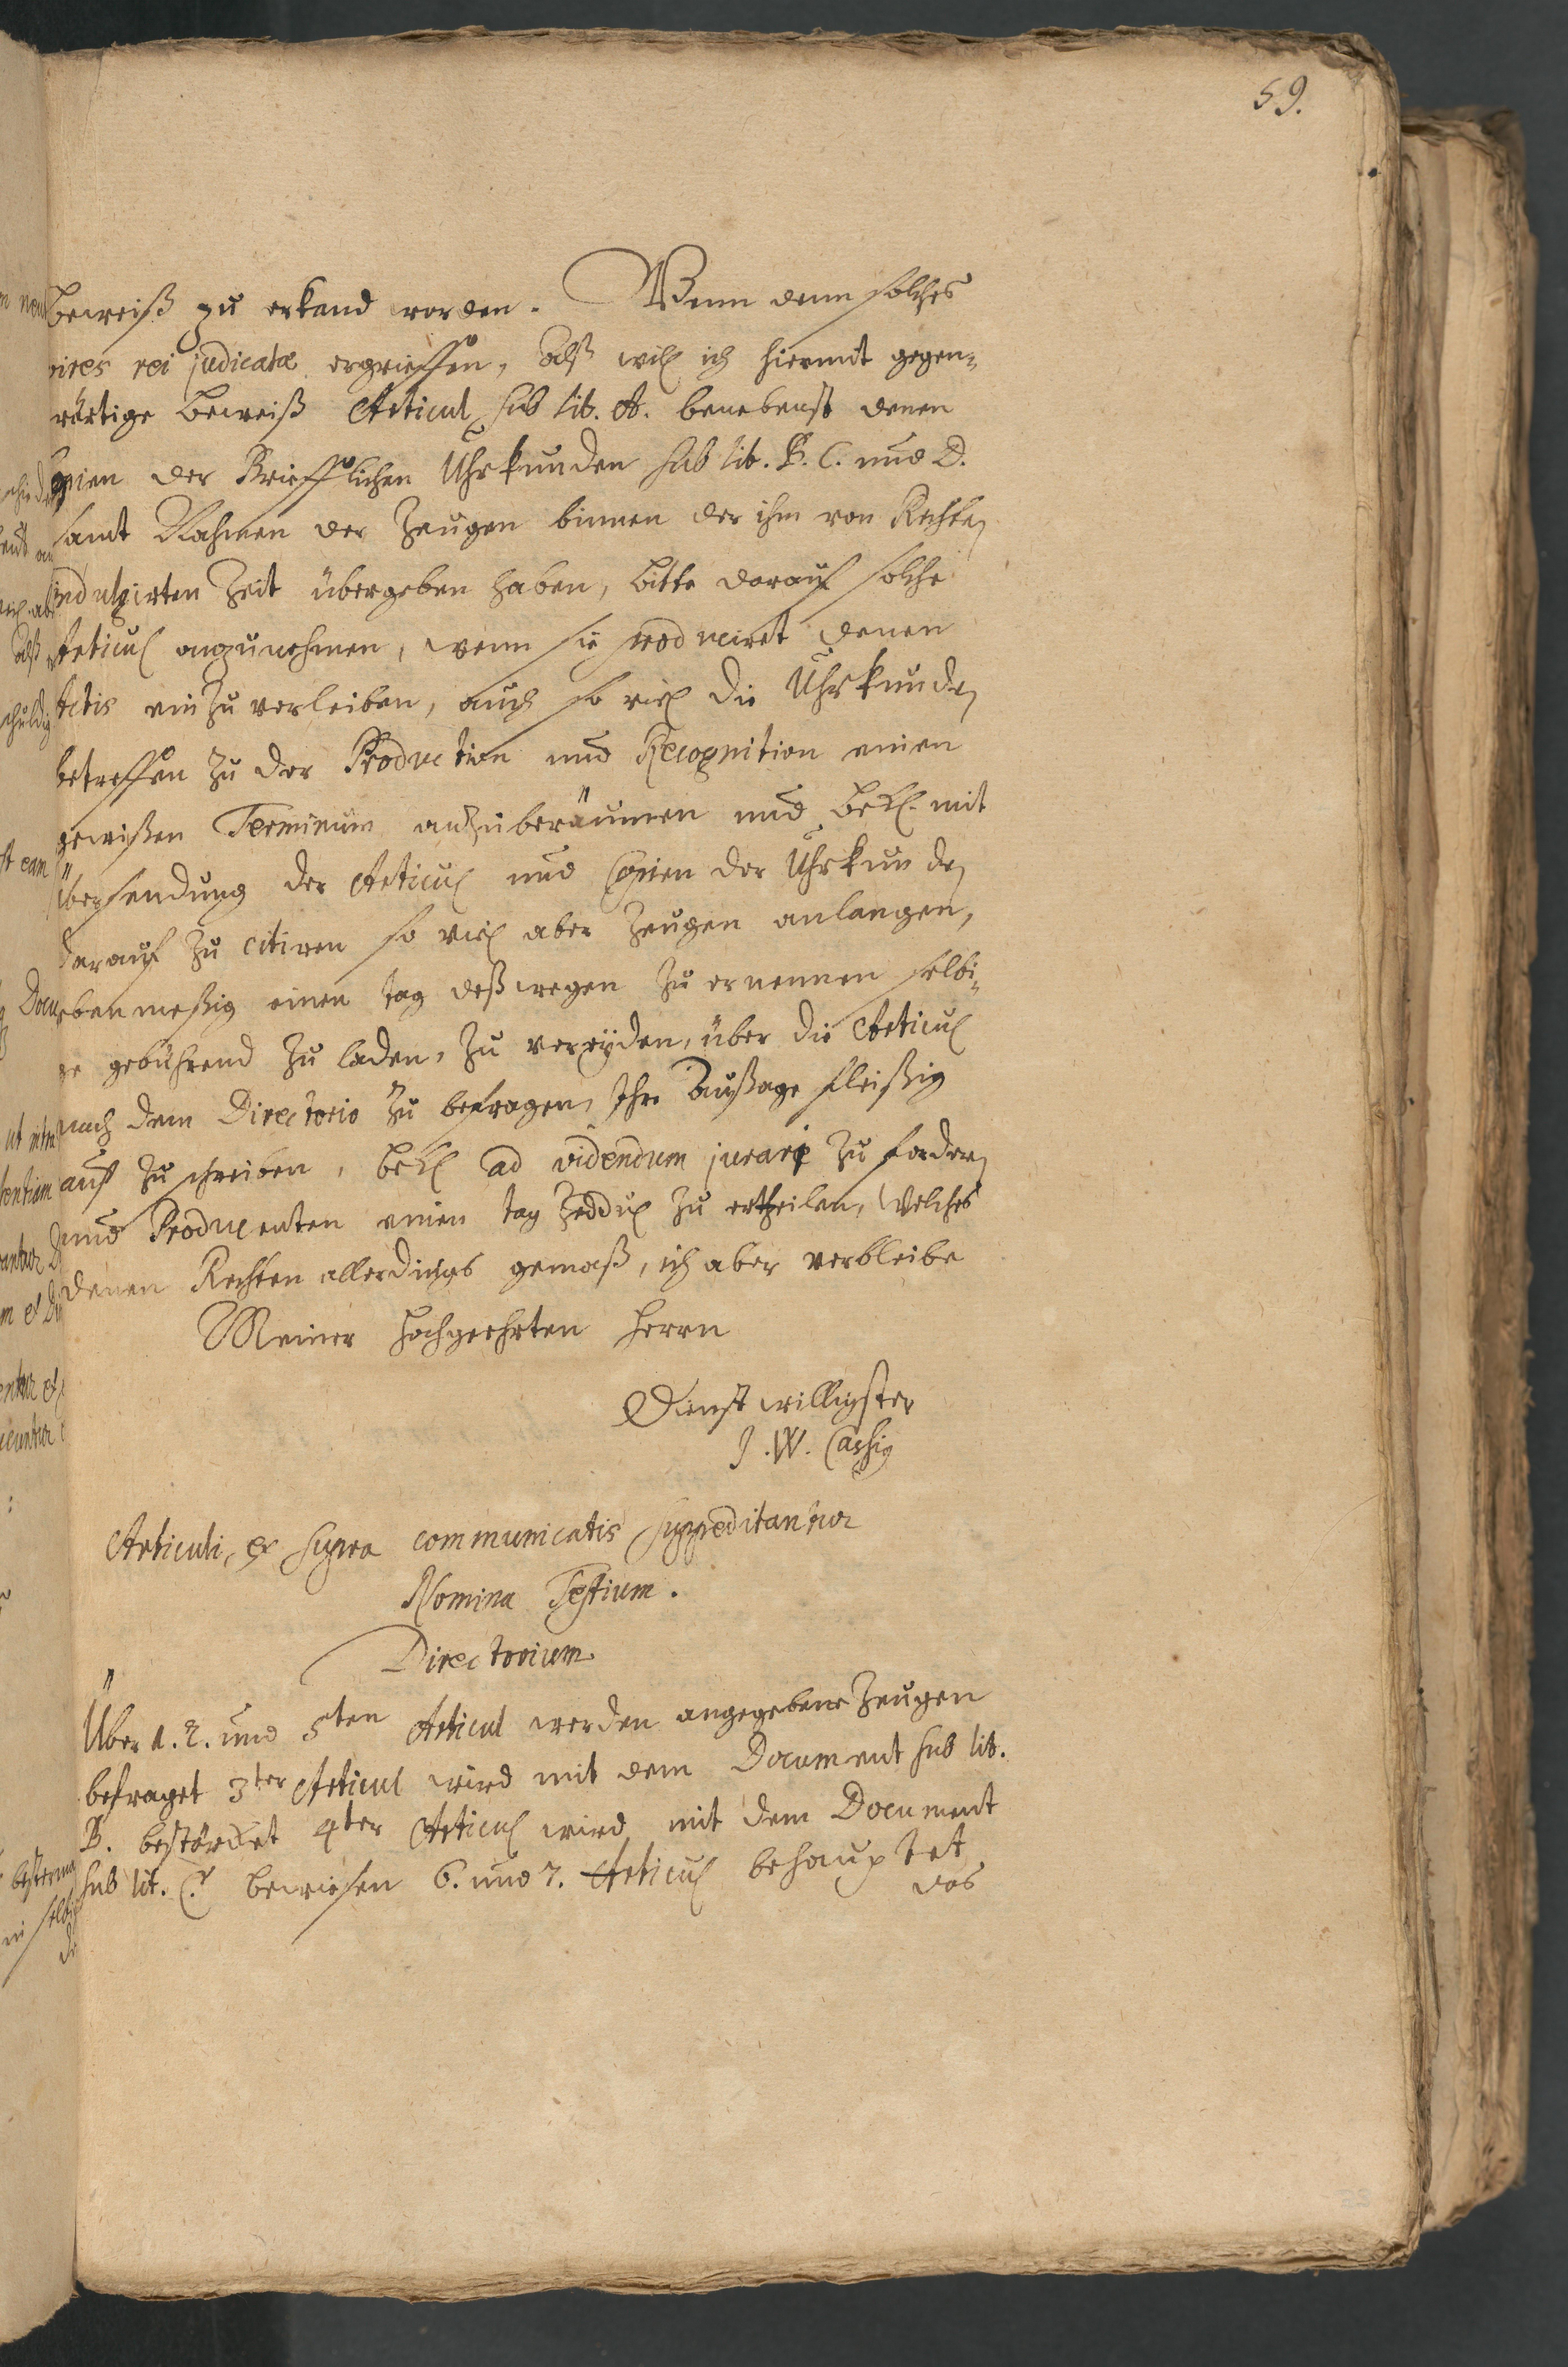 59.
beweiß zu erkand worden. Wenn denn solches
vires rei judicatæ ergrieffen, Alß will ich hiermit gegen-
wärtige Beweiß Articul sub lit. A. benebenst denen
Copien der Briefflichen Uhrkunden sub lit. B. C. und D.
samt Nahmen der Zeugen binnen der ihm von Rechten
indulgirten Zeit übergeben haben, bitte darauf solche
Articul anzunehmen, wenn sie produciret denen
Actis einzuverleiben, auch so viel die Uhrkunden
betreffen zu der Production und Recognition einen
gewißen Terminum anzuberäumen und Bekl. mit
übersendung der Articul und Copien der Uhrkunden
darauf zu citiren so viel aber Zeugen anlangen,
ebenmeßig einen tag deßwegen zu ernennen selbi-
ge gebührend zu laden, zu vereyden, über die Articul
nach dem Directorio zu befragen, Ihre Außage fleißig
auf zu schreiben, Bekl ad videndum jurare zu fordern
und Producenten einen tag Zeddul zu ertheilen, Welches
denen Rechten allerdings gemäß, ich aber verbleibe
Meiner Hochgeehrten Herrn
Dienstwilligster
J. W.
Articuli, ex supra communicatis suppeditantur
Nomina Testium.
Directorium
Über 1. 2. und 5ten Articul werden angegebene Zeugen
befraget 3ter Articul wird mit dem Document sub lit.
B. bestärcket 4ter Articul wird mit dem Document
sub lit. C. bewiesen 6. und 7. Articul behauptet
das